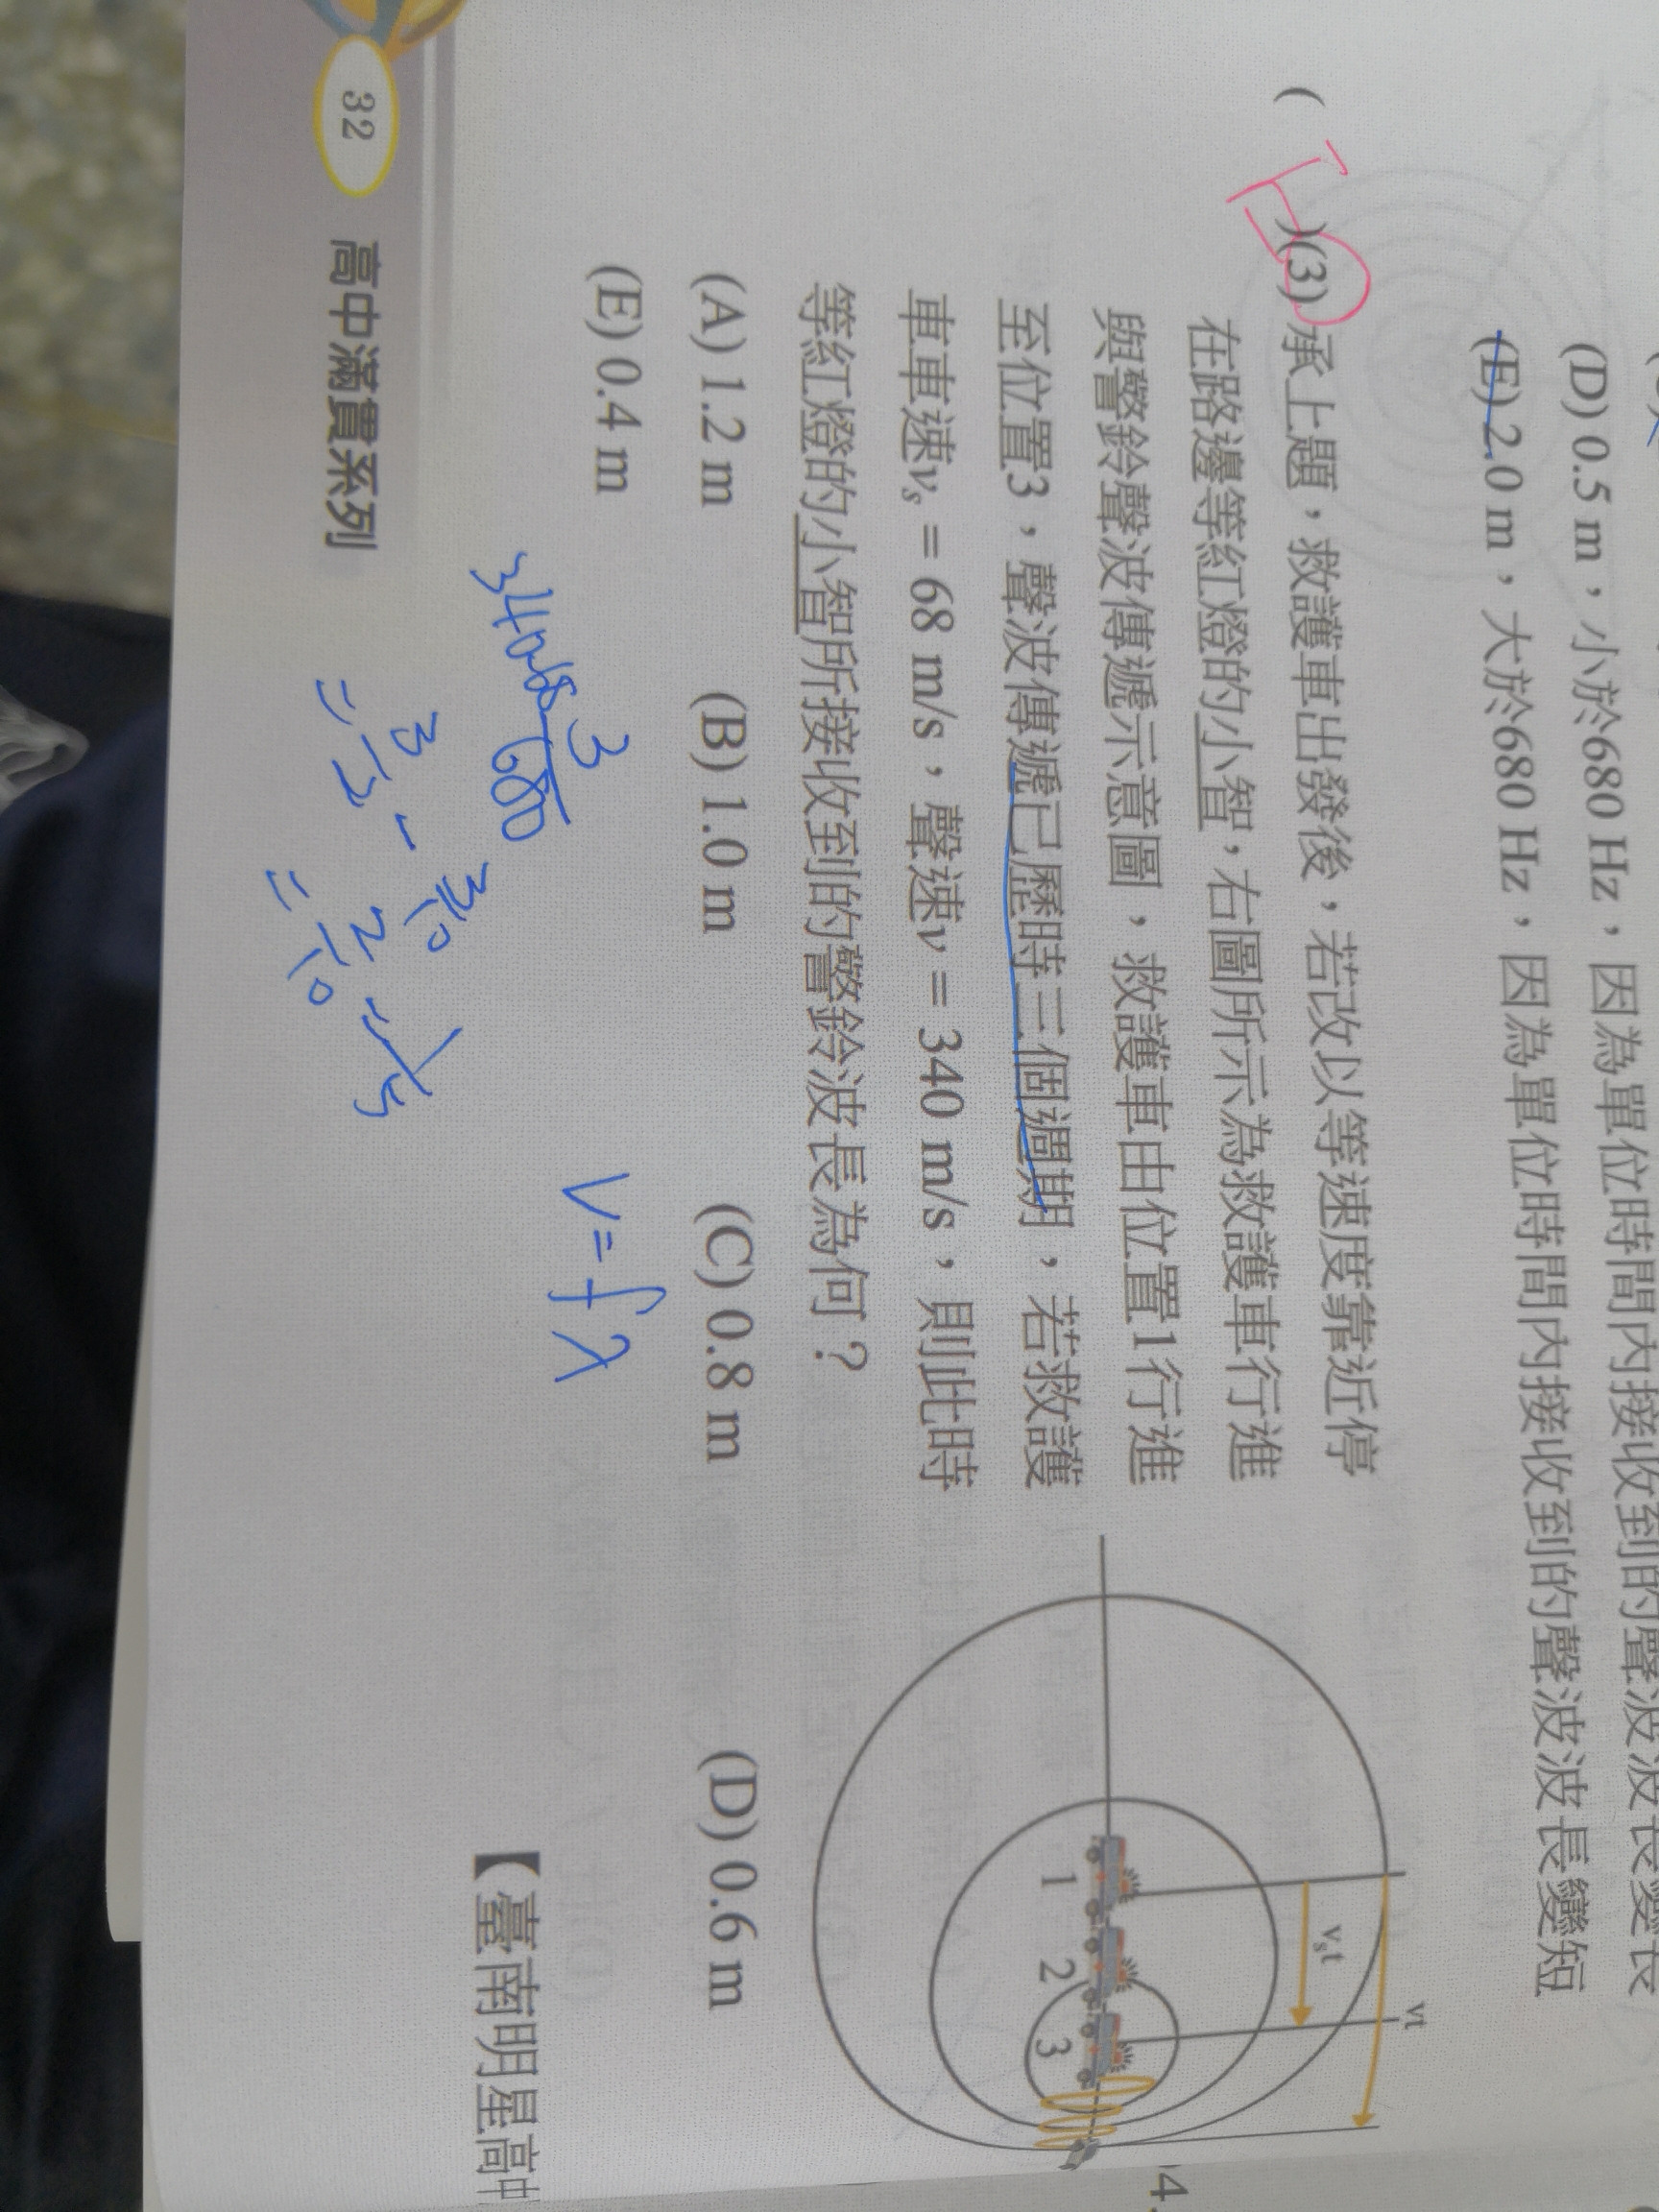 (D) 0.5 m，小於680 Hz，因為單位時間內接收到的聲波波長變長
(E) 2.0 m，大於680 Hz，因為單位時間內接收到的聲波波長變短
( )(3) 承上題，救護車出發後，若改以等速度靠近停
在路邊等紅燈的小智，右圖所示為救護車行進
與警鈴聲波傳遞示意圖，救護車由位置1行進
至位置3，聲波傳遞已歷時三個週期，若救護
車車速vs = 68 m/s，聲速v = 340 m/s，則此時
等紅燈的小智所接收到的警鈴波長為何？
(A) 1.2 m (B) 1.0 m (C) 0.8 m (D) 0.6 m
(E) 0.4 m
vt
vst
1 2 3
4.
【臺南明星高中
V = fλ
3
340-68
680
= 3/2 - 3/10
32 高中滿貫系列